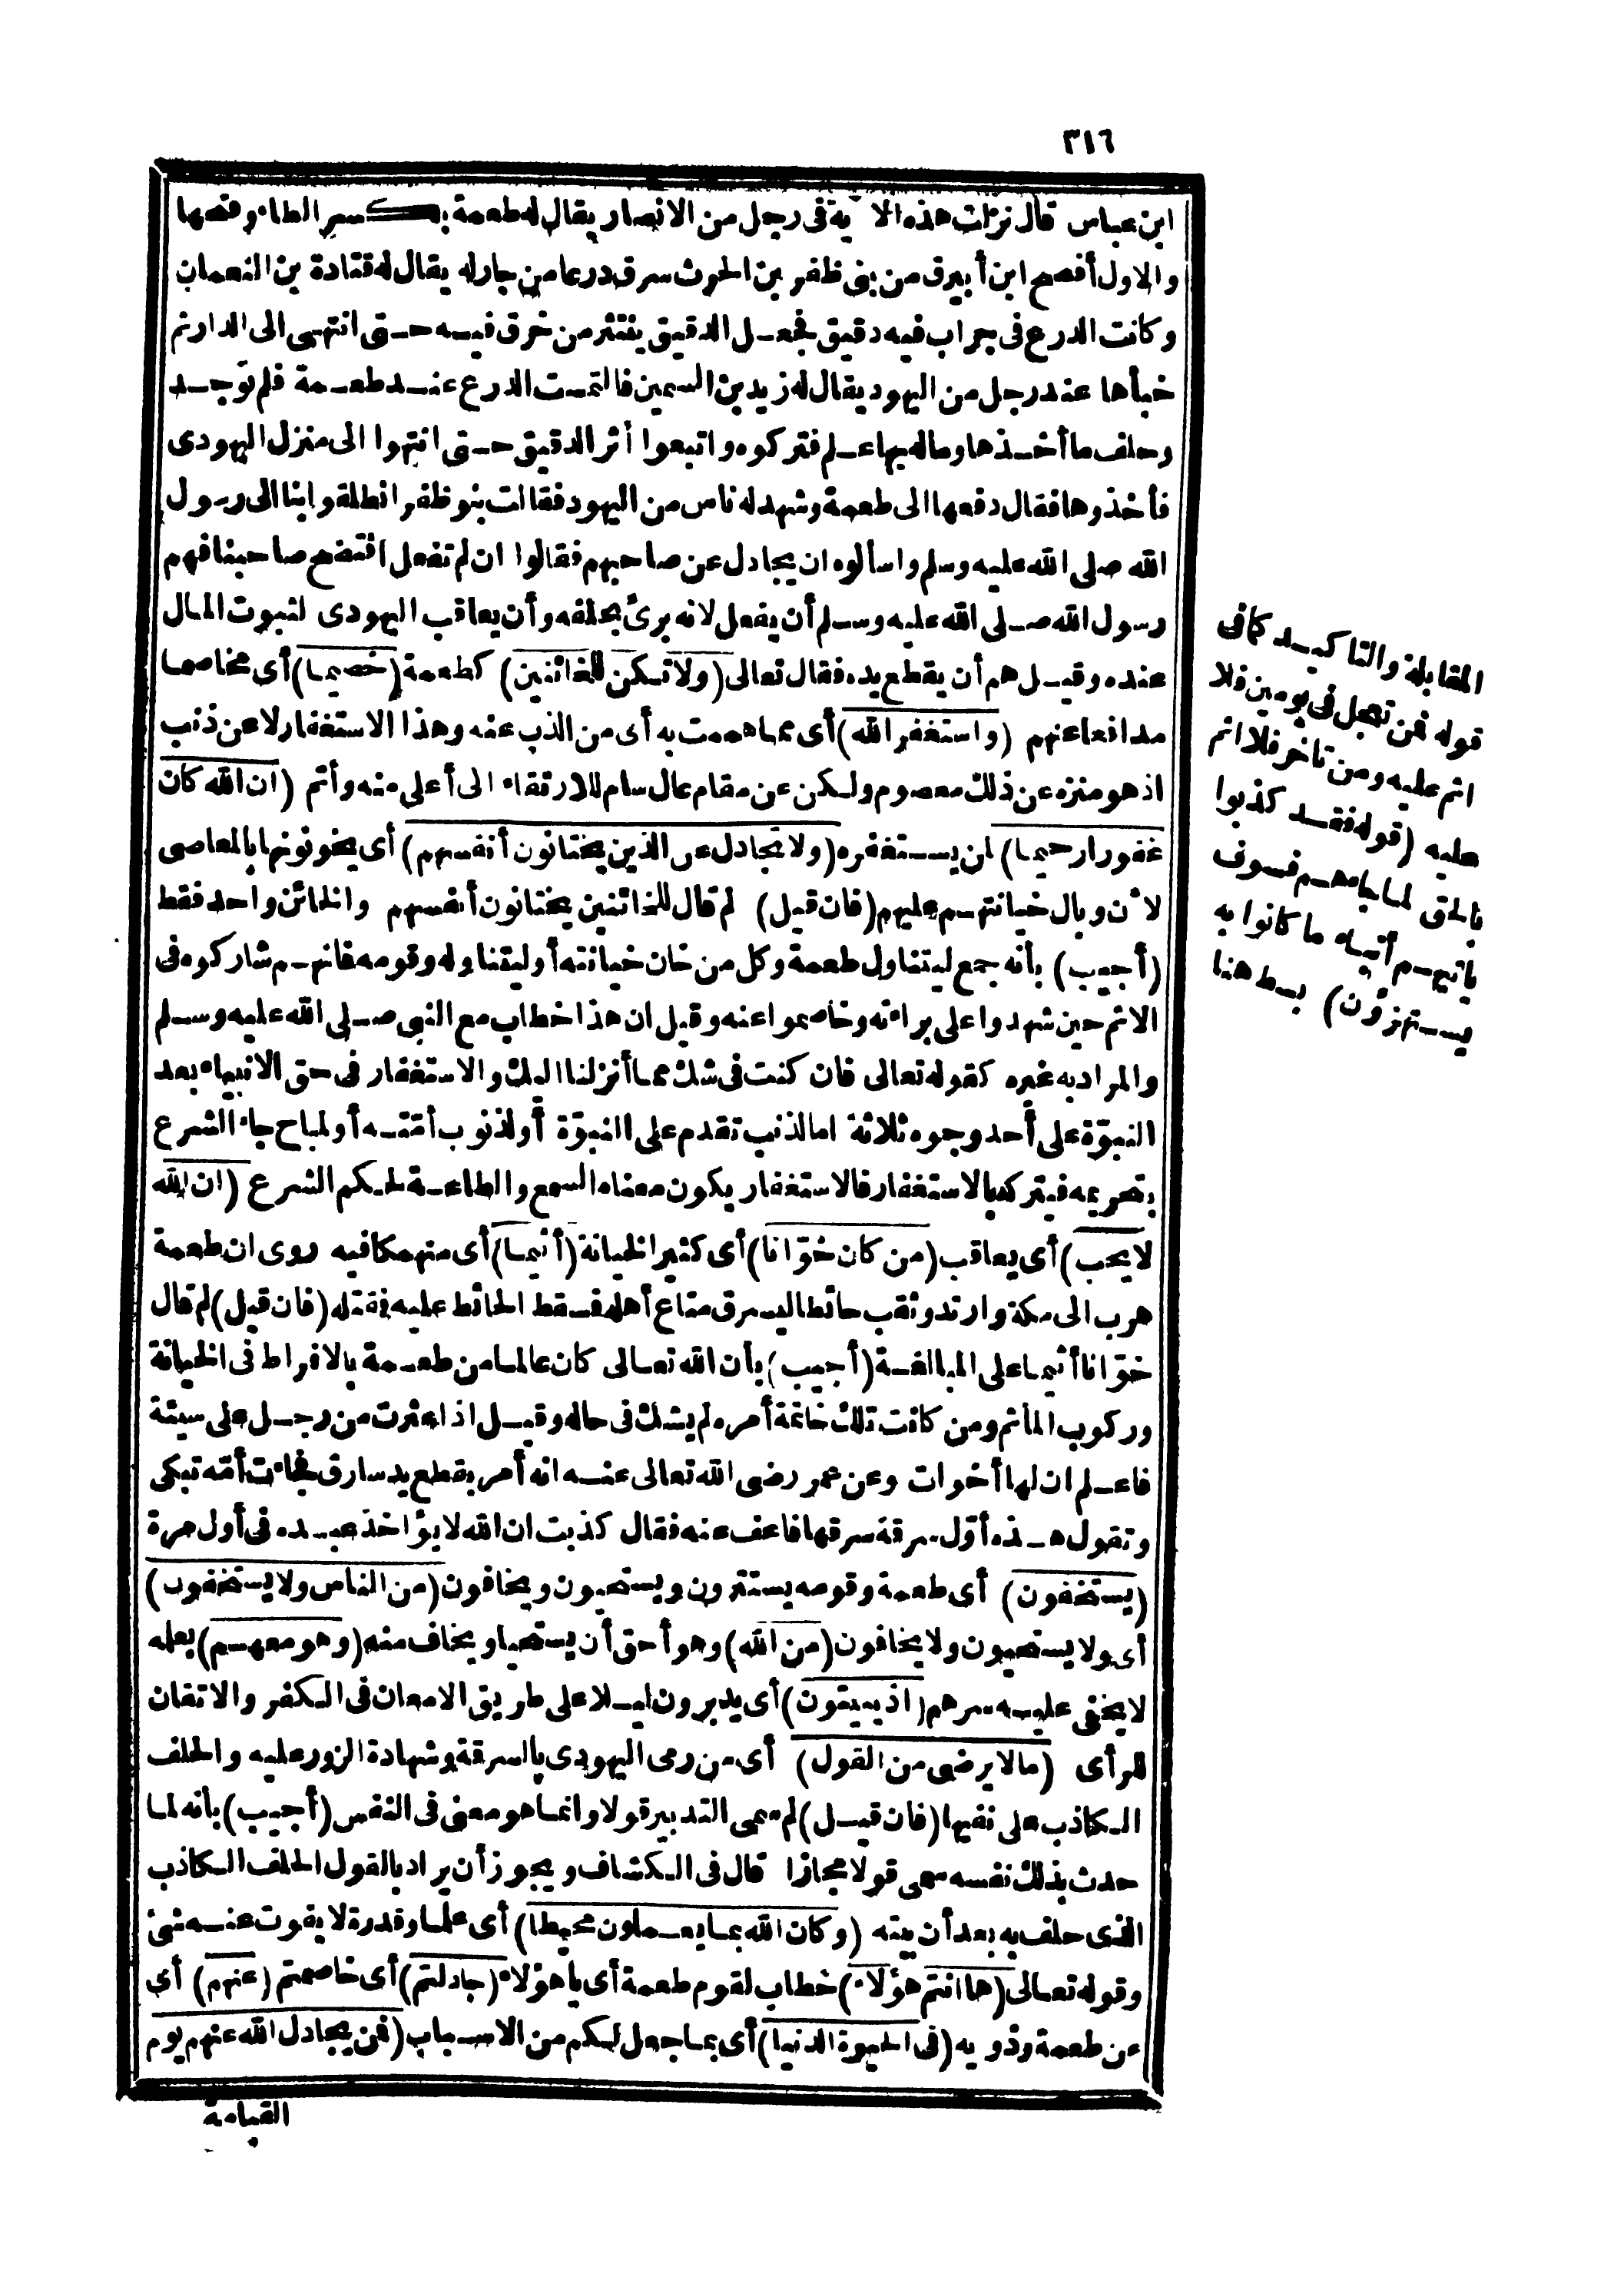 ٣١٦
ابن عباس قال نزلت هذه الآية فى رجل من الانصار يقال له طعمة بكسر الطاء وفتحها
والاول أفصح ابن أبيرق من بنى ظفر بن الحرث سرق درعا من جار له يقال له قتادة بن النعمان
وكانت الدرع فى جراب فيه دقيق فجعل الدقيق ينتثر من خرق فيه حتى انتهى الى الدار ثم
خبأها عند رجل من اليهود يقال له زيد بن السمين فالتمست الدرع عند طعمة فلم توجد
وحلف ما أخذها وماله بها علم فتركوه واتبعوا أثر الدقيق حتى انتهوا الى منزل اليهودى
فأخذوها فقال دفعها الى طعمة وشهد له ناس من اليهود فقالت بنو ظفر انطلقوا بنا الى رسول
الله صلى الله عليه وسلم واسألوه ان يجادل عن صاحبهم فقالوا ان لم تفعل افتضح صاحبنا فهم
رسول الله صلى الله عليه وسلم أن يفعل لانه برئ بحلفه وأن يعاقب اليهودى لثبوت المال
عنده وقيل هم أن يقطع يده فقال تعالى (ولا تكن للخائنين) كطعمة (خصيما) أى مخاصما
مدافعا عنهم (واستغفر الله) أى مما هممت به أى من الذب عنه وهذا الاستغفار لا عن ذنب
اذ هو منزه عن ذلك معصوم ولكن عن مقام عال سام للارتقاء الى أعلى منه وأتم (ان الله كان
غفورا رحيما) لمن يستغفره (ولا تجادل عن الذين يختانون أنفسهم) أى يخونونها بالمعاصى
لأن وبال خيانتهم عليهم (فان قيل) لم قال للخائنين يختانون أنفسهم والخائن واحد فقط
(أجيب) بأنه جمع ليتناول طعمة وكل من خان خيانته أو ليتناوله وقومه فانهم شاركوه فى
الاثم حين شهدوا على براءته وخاصموا عنه وقيل ان هذا خطاب مع النبى صلى الله عليه وسلم
والمراد به غيره كقوله تعالى فان كنت فى شك مما أنزلنا اليك والاستغفار فى حق الانبياء بعد
النبوّة على أحد وجوه ثلاثة اما لذنب تقدم على النبوّة أو لذنوب أمّته أو لمباح جاء الشرع
بتحريمه فيتركه بالاستغفار فالاستغفار يكون معناه السمع والطاعة لحكم الشرع (ان الله
لا يحب) أى يعاقب (من كان خوّانا) أى كثير الخيانة (أثيما) أى منهمكا فيه روى ان طعمة
هرب الى مكة وارتد ونقب حائطا ليسرق متاع أهله فسقط الحائط عليه فقتله (فان قيل) لم قال
خوّانا أثيما على المبالغة (أجيب) بأن الله تعالى كان عالما من طعمة بالافراط فى الخيانة
وركوب المأثم ومن كانت تلك خاتمة أمره لم يشك فى حاله وقيل اذا عثرت من رجل على سيئة
فاعلم ان لها أخوات وعن عمر رضى الله تعالى عنه انه أمر بقطع يد سارق فجاءت أمّه تبكى
وتقول هذه أوّل سرقة سرقها فاعف عنه فقال كذبت ان الله لا يؤاخذ عبده فى أول مرة
(يستخفون) أى طعمة وقومه يستترون ويستحيون ويخافون (من الناس ولا يستخفون)
أى ولا يستحيون ولا يخافون (من الله) وهو أحق أن يستحيا ويخاف منه (وهو معهم) بعلمه
لا يخفى عليه سرهم (اذ يبيتون) أى يدبرون ليلا على طريق الامعان فى الكفر والاتقان
للرأى (ما لا يرضى من القول) أى من رمى اليهودى بالسرقة وشهادة الزور عليه والحلف
الكاذب على نفيها (فان قيل) لم سمى التدبير قولا وانما هو معنى فى النفس (أجيب) بأنه لما
حدث بذلك نفسه سمى قولا مجازا قال فى الكشاف ويجوز أن يراد بالقول الحلف الكاذب
الذى حلف به بعد أن بيته (وكان الله بما يعملون محيطا) أى علما وقدرة لا يفوت عنه شئ
وقوله تعالى (ها انتم هؤلاء) خطاب لقوم طعمة أى يا هؤلاء (جادلتم) أى خاصمتم (عنهم) أى
عن طعمة وذويه (فى الحيوة الدنيا) أى بما جعل لكم من الاسباب (فمن يجادل الله عنهم يوم
القيامة
المقابلة والتأكيد كما فى
قوله فمن تعجل فى يومين فلا
اثم عليه ومن تاخر فلا اثم
عليه (قوله فقد كذبوا
بالحق لما جاءهم فسوف
يأتيهم أنباء ما كانوا به
يستهزؤن) بسط هنا